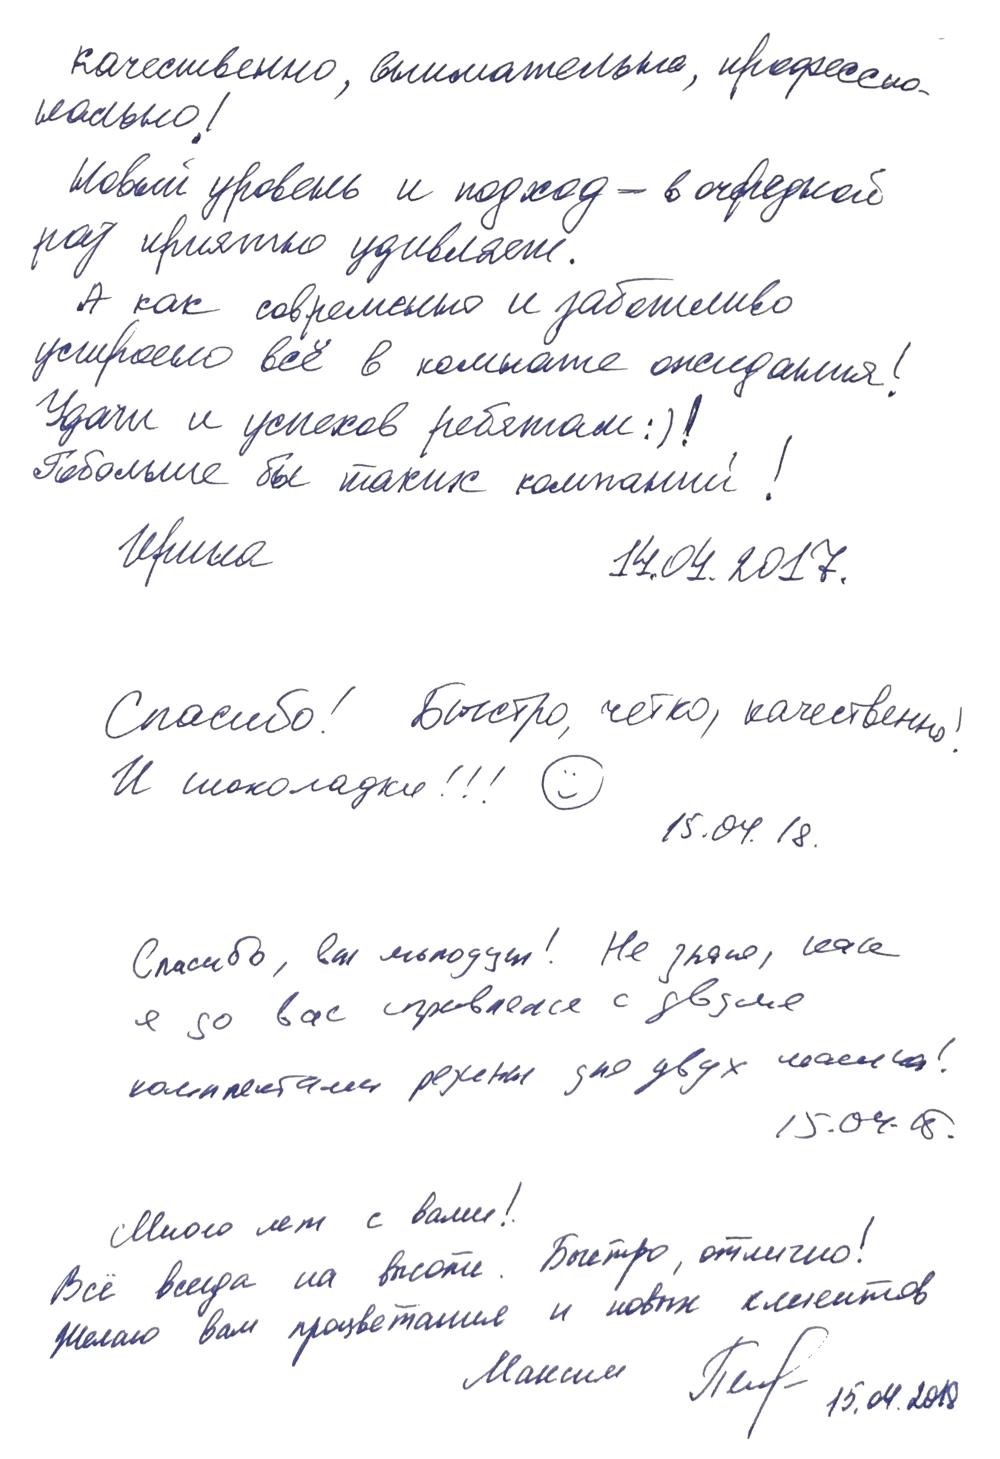 качественно, внимательно, професcио-
нально!
Новый уровень и подход – в очередной
раз приятно удивляет.
А как современно и заботливо
устроено всё в комнате ожидания!
Удачи и успехов ребятам :)!
Побольше бы таких компаний!
Ирина 14.04.2017.
Спасибо! Быстро, четко, качественно!
И шоколадки!!!
15.04.18.
Спасибо, вы молодцы! Не знаю, как
я до вас справлялся с двумя
комплектами резины для двух машин!
15.04.18.
Много лет с вами!
Всё всегда на высоте. Быстро, отлично!
Желаю вам процветания и новых клиентов
Максим 15.04.2018